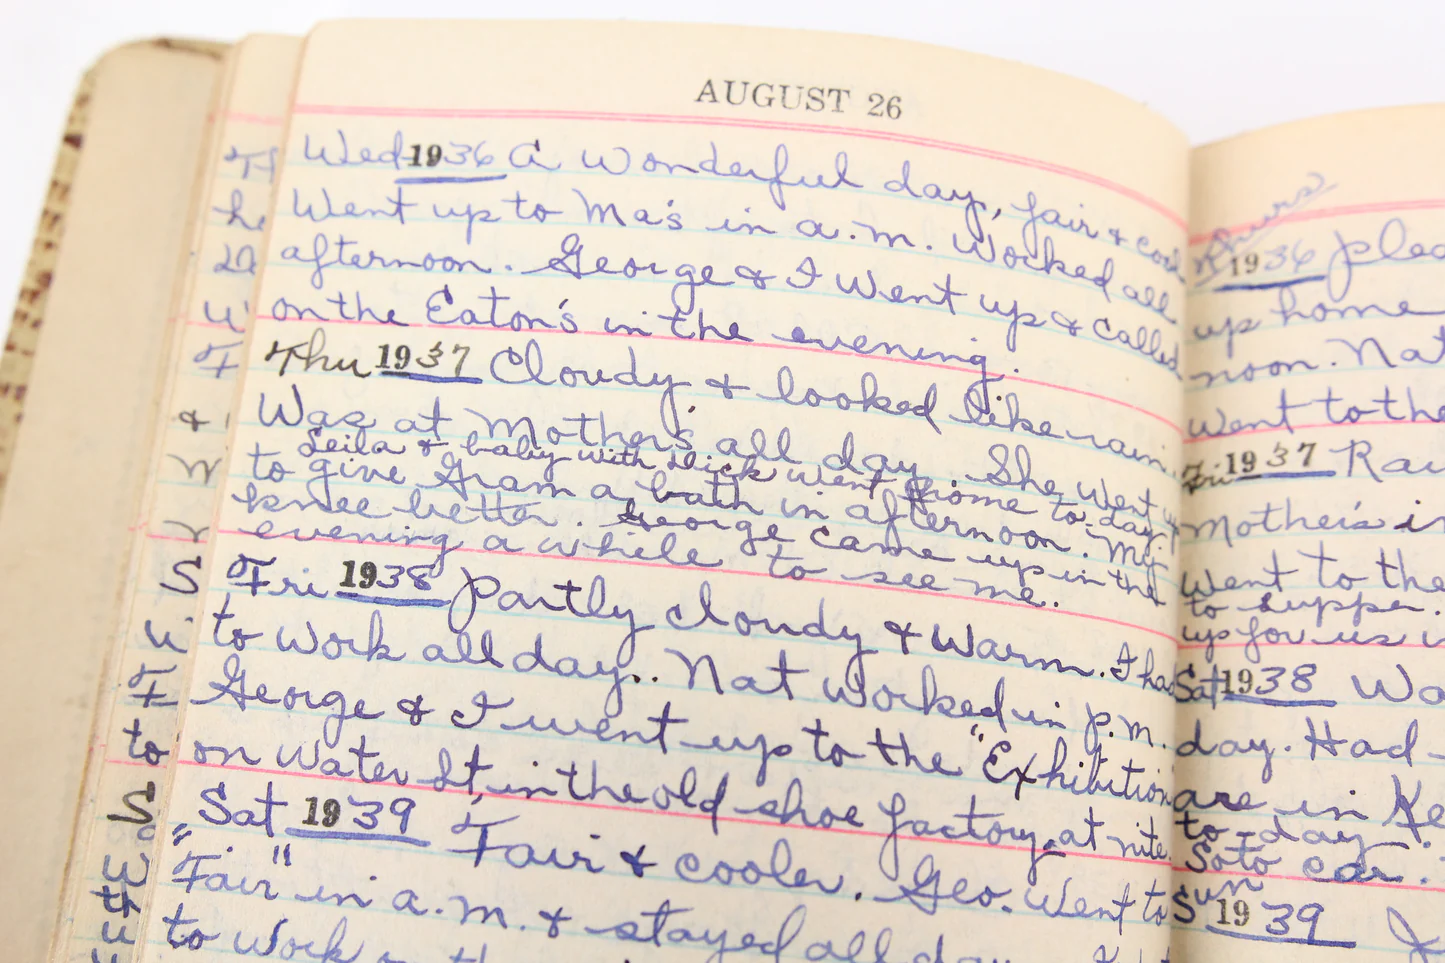 AUGUST 26
Wed 1936 A Wonderful day, fair & cool
Went up to Ma's in a.m. Worked all
afternoon. George & I Went up & called
on the Eaton's in the evening.
Thu 1937 Cloudy & looked like rain.
Was at Mother's all day. She went up
Leila & baby with Dick went home to-day.
to give Gram a bath in afternoon. My
knee better. George came up in the
evening a while to see me.
Fri 1938 Partly cloudy & Warm. I had
to work all day.. Nat worked in p.m.
George & I went up to the "Exhibition
on Water St, in the old shoe factory, at nite.
Sat 1939 Fair & cooler. Geo. Went to
"Fair" in a.m. & stayed all day.
to work
1936
up home
noon. Nat
Went to the
Fri 1937
Mother's
Went to the
to supper.
up for us
Sat 1938
day. Had
are in
to-day
So to car.
Sun 1939